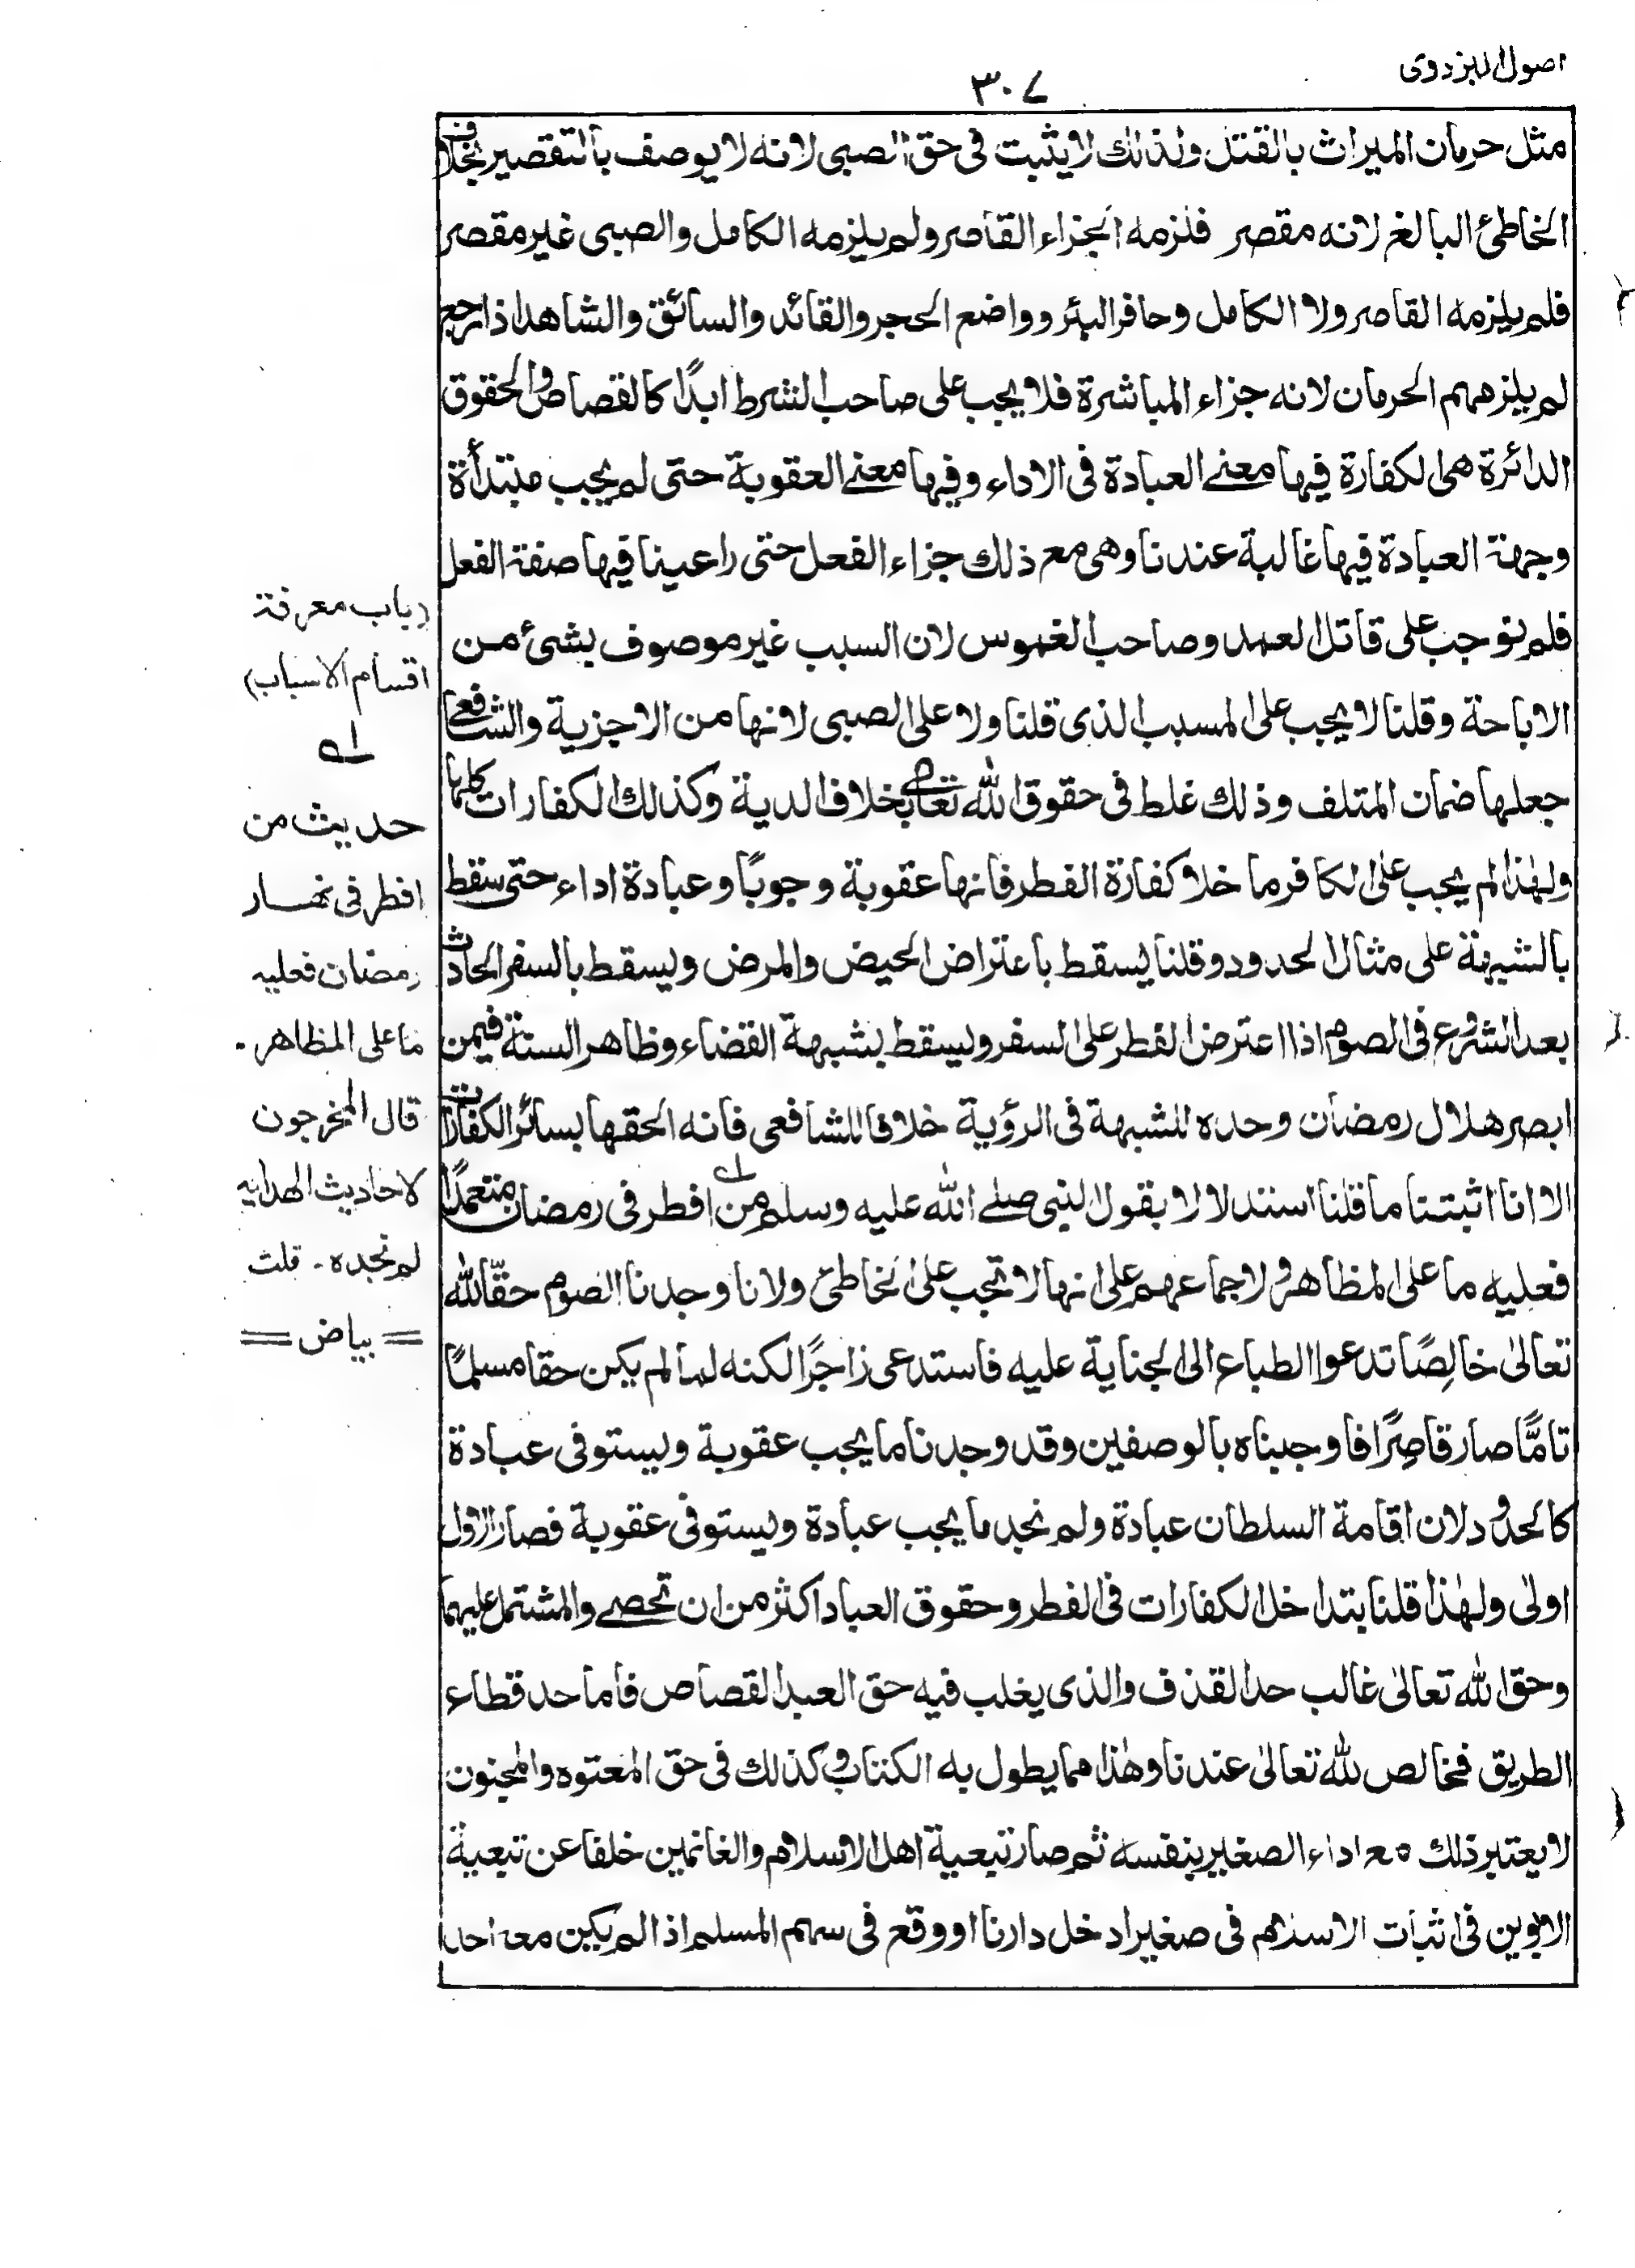 اصول البزدوى
٣٠٧
مثل حرمان الميراث بالقتل ولذلك لا يثبت فى حق الصبى لانه لا يوصف بالتقصير بخلاف
الخاطئ البالغ لانه مقصر فلزمه الجزاء القاصر ولم يلزمه الكامل والصبى غير مقصر
فلم يلزمه القاصر ولا الكامل وحافر البئر وواضع الحجر والقائد والسائق والشاهد اذا رجع
لم يلزمهم الحرمان لانه جزاء المباشرة فلا يجب على صاحب الشرط ابدًا كالقصاص والحقوق
الدائرة هى الكفارة فيها معنى العبادة فى الاداء وفيها معنى العقوبة حتى لم يجب مبتدأة
وجهة العبادة فيها غالبة عندنا وهى مع ذلك جزاء الفعل حتى راعينا فيها صفة الفعل
فلم نوجب على قاتل العمد وصاحب الغموس لان السبب غير موصوف بشئ من
الاباحة وقلنا لا يجب على المسبب الذى قلنا ولا على الصبى لانها من الاجزية والشافعى
جعلها ضمان المتلف وذلك غلط فى حقوق الله تعالى بخلاف الدية وكذلك الكفارات كلها
ولهٰذا لم يجب على الكافر ما خلا كفارة الفطر فانها عقوبة وجوبًا وعبادة اداء حتى سقط
بالشبهة على مثال الحدود وقلنا يسقط باعتراض الحيض والمرض ويسقط بالسفر الحادث
بعد الشروع فى الصوم اذا اعترض الفطر على السفر ويسقط بشبهة القضاء وظاهر السنة فيمن
ابصر هلال رمضان وحده للشبهة فى الرؤية خلافا للشافعى فانه الحقها بسائر الكفارات
الا انا اثبتنا ما قلنا استدلالا بقول النبى صلى الله عليه وسلم من افطر فى رمضان متعمدًا
فعليه ما على المظاهر ولاجماعهم على انها لا تجب على الخاطئ ولانا وجدنا الصوم حقًّا لله
تعالىٰ خالِصًا تدعوا الطباع الى الجناية عليه فاستدعى زاجرًا لكنه لما لم يكن حقا مسلمًا
تامًّا صار قاصِرًا فاوجبناه بالوصفين وقد وجدنا ما يجب عقوبة ويستوفى عبادة
كالحدود لان اقامة السلطان عبادة ولم نجد ما يجب عبادة ويستوفى عقوبة فصار الاول
اولىٰ ولهٰذا قلنا بتداخل الكفارات فى الفطر وحقوق العباد اكثر من ان تحصى والمشتمل عليهما
وحق الله تعالىٰ غالب حد القذف والذى يغلب فيه حق العبد القصاص فاما حد قطاع
الطريق فخالص لله تعالىٰ عندنا وهٰذا مما يطول به الكتاب وكذلك فى حق المعتوه والمجنون
لا يعتبر ذلك مع اداء الصغير بنفسه ثم صار تبعية اهل الاسلام والغانمين خلفا عن تبعية
الابوين فى اثبات الاسلام فى صغير ادخل دارنا او وقع فى سهم المسلم اذا لم يكن معه احد
(باب معرفة
اقسام الاسباب)
حديث من
افطر فى نهار
رمضان فعليه
ما على المظاهر .
قال المخرجون
لاحاديث الهدايه
لم نجده . قلت
= بياض =